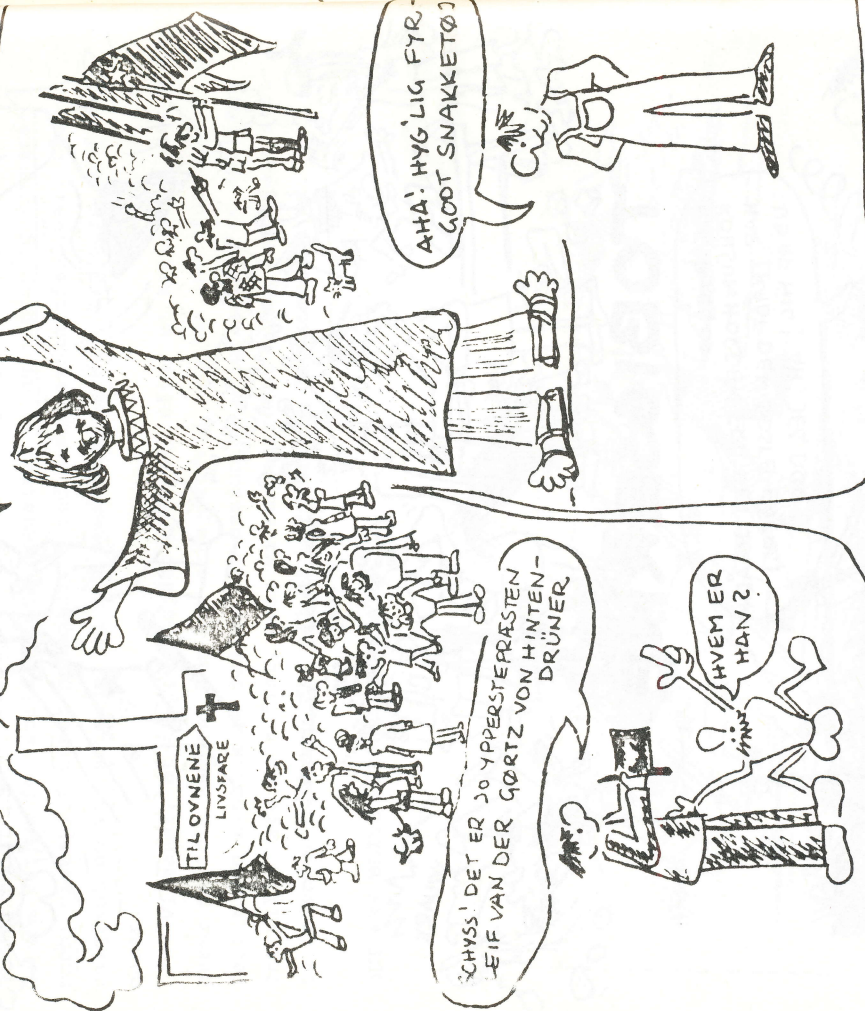 TIL OVNENE
LIVSFARE
SCHYSS! DET ER JO YPPERSTEPRÆSTEN
LEIF VAN DER GØRTZ VON HINTEN-
DRÜNER
HVEM ER
HAN?
AHA! HYG'LIG FYR-
GODT SNAKKETØJ